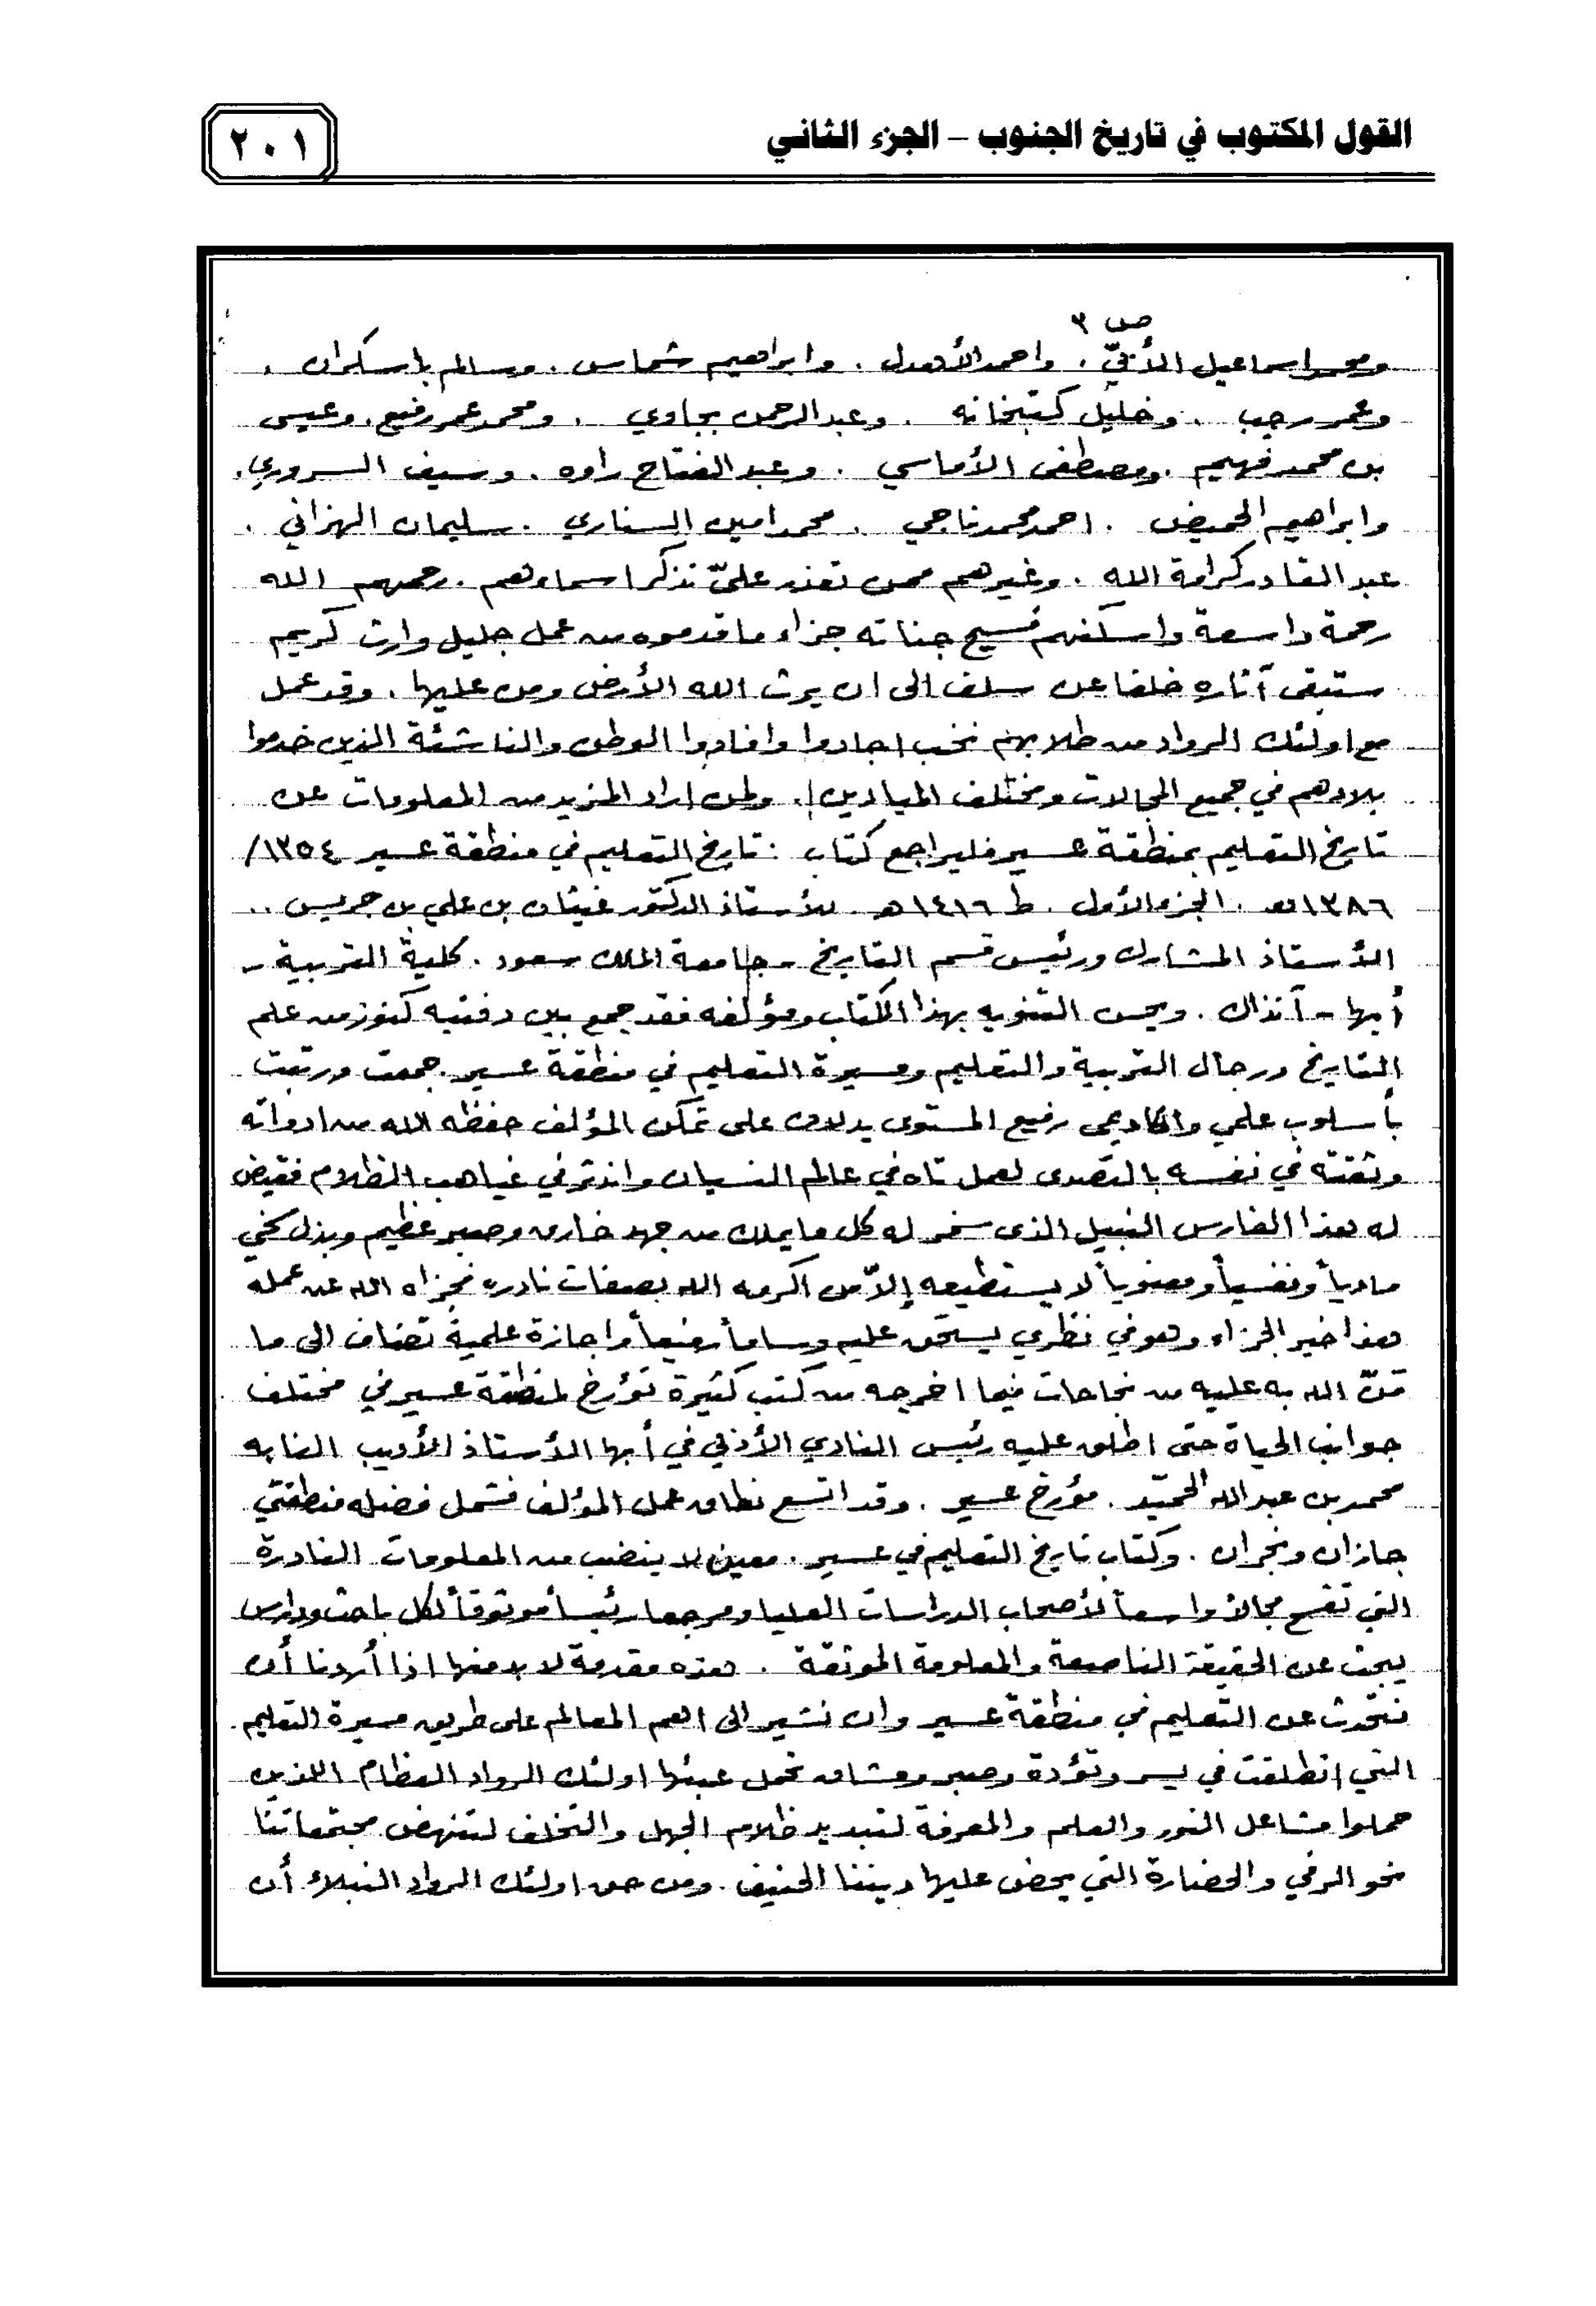 القول المكتوب في تاريخ الجنوب – الجزء الثاني
٢٠١
ص ٣
ومحمد اسماعيل الأبيّ . واحمد الأهدل . وابراهيم شماس . وسالم باسكران .
وعمر رجب . وخليل كتبخانه . وعبدالرحمن بجاوي . ومحمد عمر رفيع . وعيسى
بن محمد فهيم . ومصطفى الأماسي . وعبد الفتاح راوه . وسيف السروري .
وابراهيم الحميضي . احمد محمد ناجي . محمد امين السناري . سليمان الهزاني .
عبد القادر كرامة الله . وغيرهم ممن تعذر عليّ تذكر اسماءهم . رحمهم الله
رحمة واسعة واسكنهم فسيح جناته جزاء ما قدموه من عمل جليل وارث كريم
ستبقى آثاره خلفا عن سلف الى ان يرث الله الأرض ومن عليها . وقد عمل
مع اولئك الرواد من طلابهم نخب اجادوا وافادوا الوطن والناشئة الذين خدموا
بلادهم في جميع المجالات ومختلف الميادين . ولمن اراد المزيد من المعلومات عن
تاريخ التعليم بمنطقة عسير فليراجع كتاب : تاريخ التعليم في منطقة عسير ١٣٥٤/
١٣٨٦هـ . الجزء الأول . ط ١٤١٦هـ . للأستاذ الدكتور غيثان بن علي بن جريس ..
الأستاذ المشارك ورئيس قسم التاريخ - جامعة الملك سعود . كلية التربية -
أبها - آنذاك . ويحسن التنويه بهذا الكتاب ومؤلفه فقد جمع بين دفتيه كنوز من علم
التاريخ ورجال التربية والتعليم ومسيرة التعليم في منطقة عسير . جمعت ورتبت
بأسلوب علمي واكاديمي رفيع المستوى يدلان على تمكن المؤلف حفظه الله من ادواته
وثقته في نفسه بالتصدى لعمل تاه في عالم النسيان واندثر في غياهب الظلام فقيض
له هذا الفارس النبيل الذى سخر له كل ما يملك من جهد خارق وصبر عظيم وبذل سخي
مادياً ونفسياً ومعنوياً لا يستطيعه إلاّ من اكرمه الله بصفات نادره فجزاه الله عن عمله
هذا خير الجزاء وهو في نظري يستحق عليه وساماً رفيعاً واجازة علمية تضاف الى ما
منّ الله به عليه من نجاحات فيما اخرجه من كتب كثيرة تؤرخ لمنطقة عسير في مختلف
جوانب الحياة حتى اطلق عليه رئيس النادي الأدبي في أبها الأستاذ الأديب النابه
محمد بن عبدالله الحميّد . مؤرخ عسير . وقد اتسع نطاق عمل المؤلف فشمل فضله منطقتي
جازان ونجران . وكتاب تاريخ التعليم في عسير . معين لا ينضب من المعلومات النادرة
التي تفسح مجالاً واسعاً لأصحاب الدراسات العليا ومرجعا رئيساً موثوقاً لكل باحث ودارس
يبحث عن الحقيقة الناصعة والمعلومة الموثقة . هذه مقدمة لا بد منها اذا أردنا أن
نتحدث عن التعليم في منطقة عسير وان نشير الى اهم المعالم على طريق مسيرة التعليم
التي انطلقت في يسر وتؤدة وصبر ومشاق تحمل عبئها اولئك الرواد العظام اللذين
حملوا مشاعل النور والعلم والمعرفة لتبديد ظلام الجهل والتخلف لتنهض مجتمعاتنا
نحو الرقي والحضارة التي يحض عليها ديننا الحنيف . ومن حق اولئك الرواد النبلاء أن